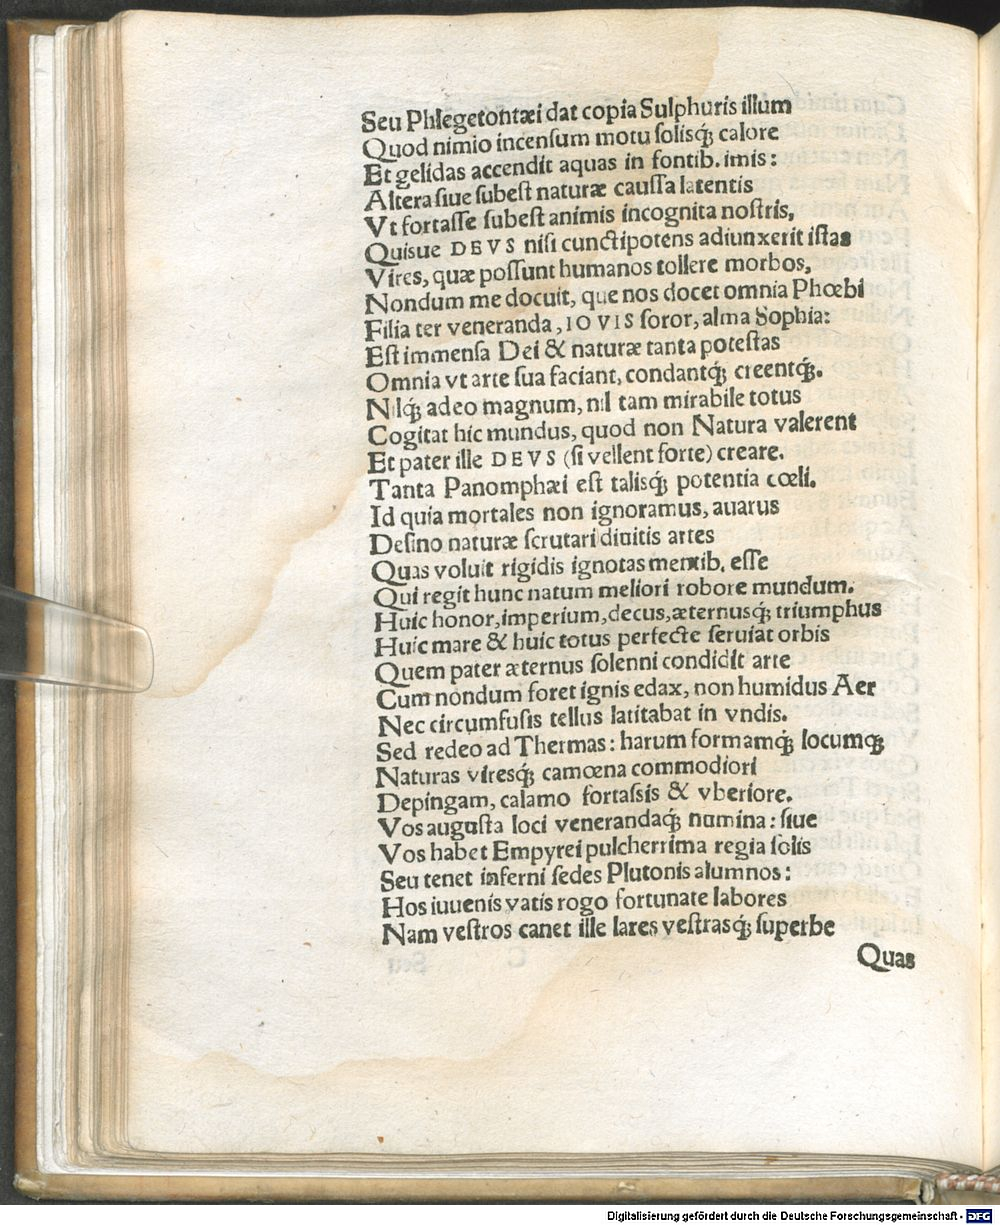 Seu Phlegetontæi dat copia Sulphuris illum
Quod nimio incensum motu solisq́; calore
Et gelidas accendit aquas in fontib. imis:
Altera siue subest naturæ caussa latentis
Vt fortasse subest animis incognita nostris,
Quisue DEVS nisi cunctipotens adiunxerit istas
Vires, quæ possunt humanos tollere morbos,
Nondum me docuit, que nos docet omnia Phœbi
Filia ter veneranda, IOVIS soror, alma Sophia:
Est immensa Dei & naturæ tanta potestas
Omnia vt arte sua faciant, condantq́; creentq́;.
Nilq́; adeo magnum, nil tam mirabile totus
Cogitat hic mundus, quod non Natura valerent
Et pater ille DEVS (si vellent forte) creare.
Tanta Panomphæi est talisq́; potentia cœli.
Id quia mortales non ignoramus, auarus
Desino naturæ scrutari diuitis artes
Quas voluit rigidis ignotas mentib. esse
Qui regit hunc natum meliori robore mundum.
Huic honor, imperium, decus, æternusq́; triumphus
Huic mare & huic totus perfecte seruiat orbis
Quem pater æternus solenni condidit arte
Cum nondum foret ignis edax, non humidus Aer
Nec circumfusis tellus latitabat in vndis.
Sed redeo ad Thermas: harum formamq́; locumq́;
Naturas viresq́; camœna commodiori
Depingam, calamo fortassis & vberiore.
Vos augusta loci venerandaq́; numina: siue
Vos habet Empyrei pulcherrima regia solis
Seu tenet inferni sedes Plutonis alumnos:
Hos iuuenis vatis rogo fortunate labores
Nam vestros canet ille lares vestrasq́; superbe
Quas
Digitalisierung gefördert durch die Deutsche Forschungsgemeinschaft - DFG